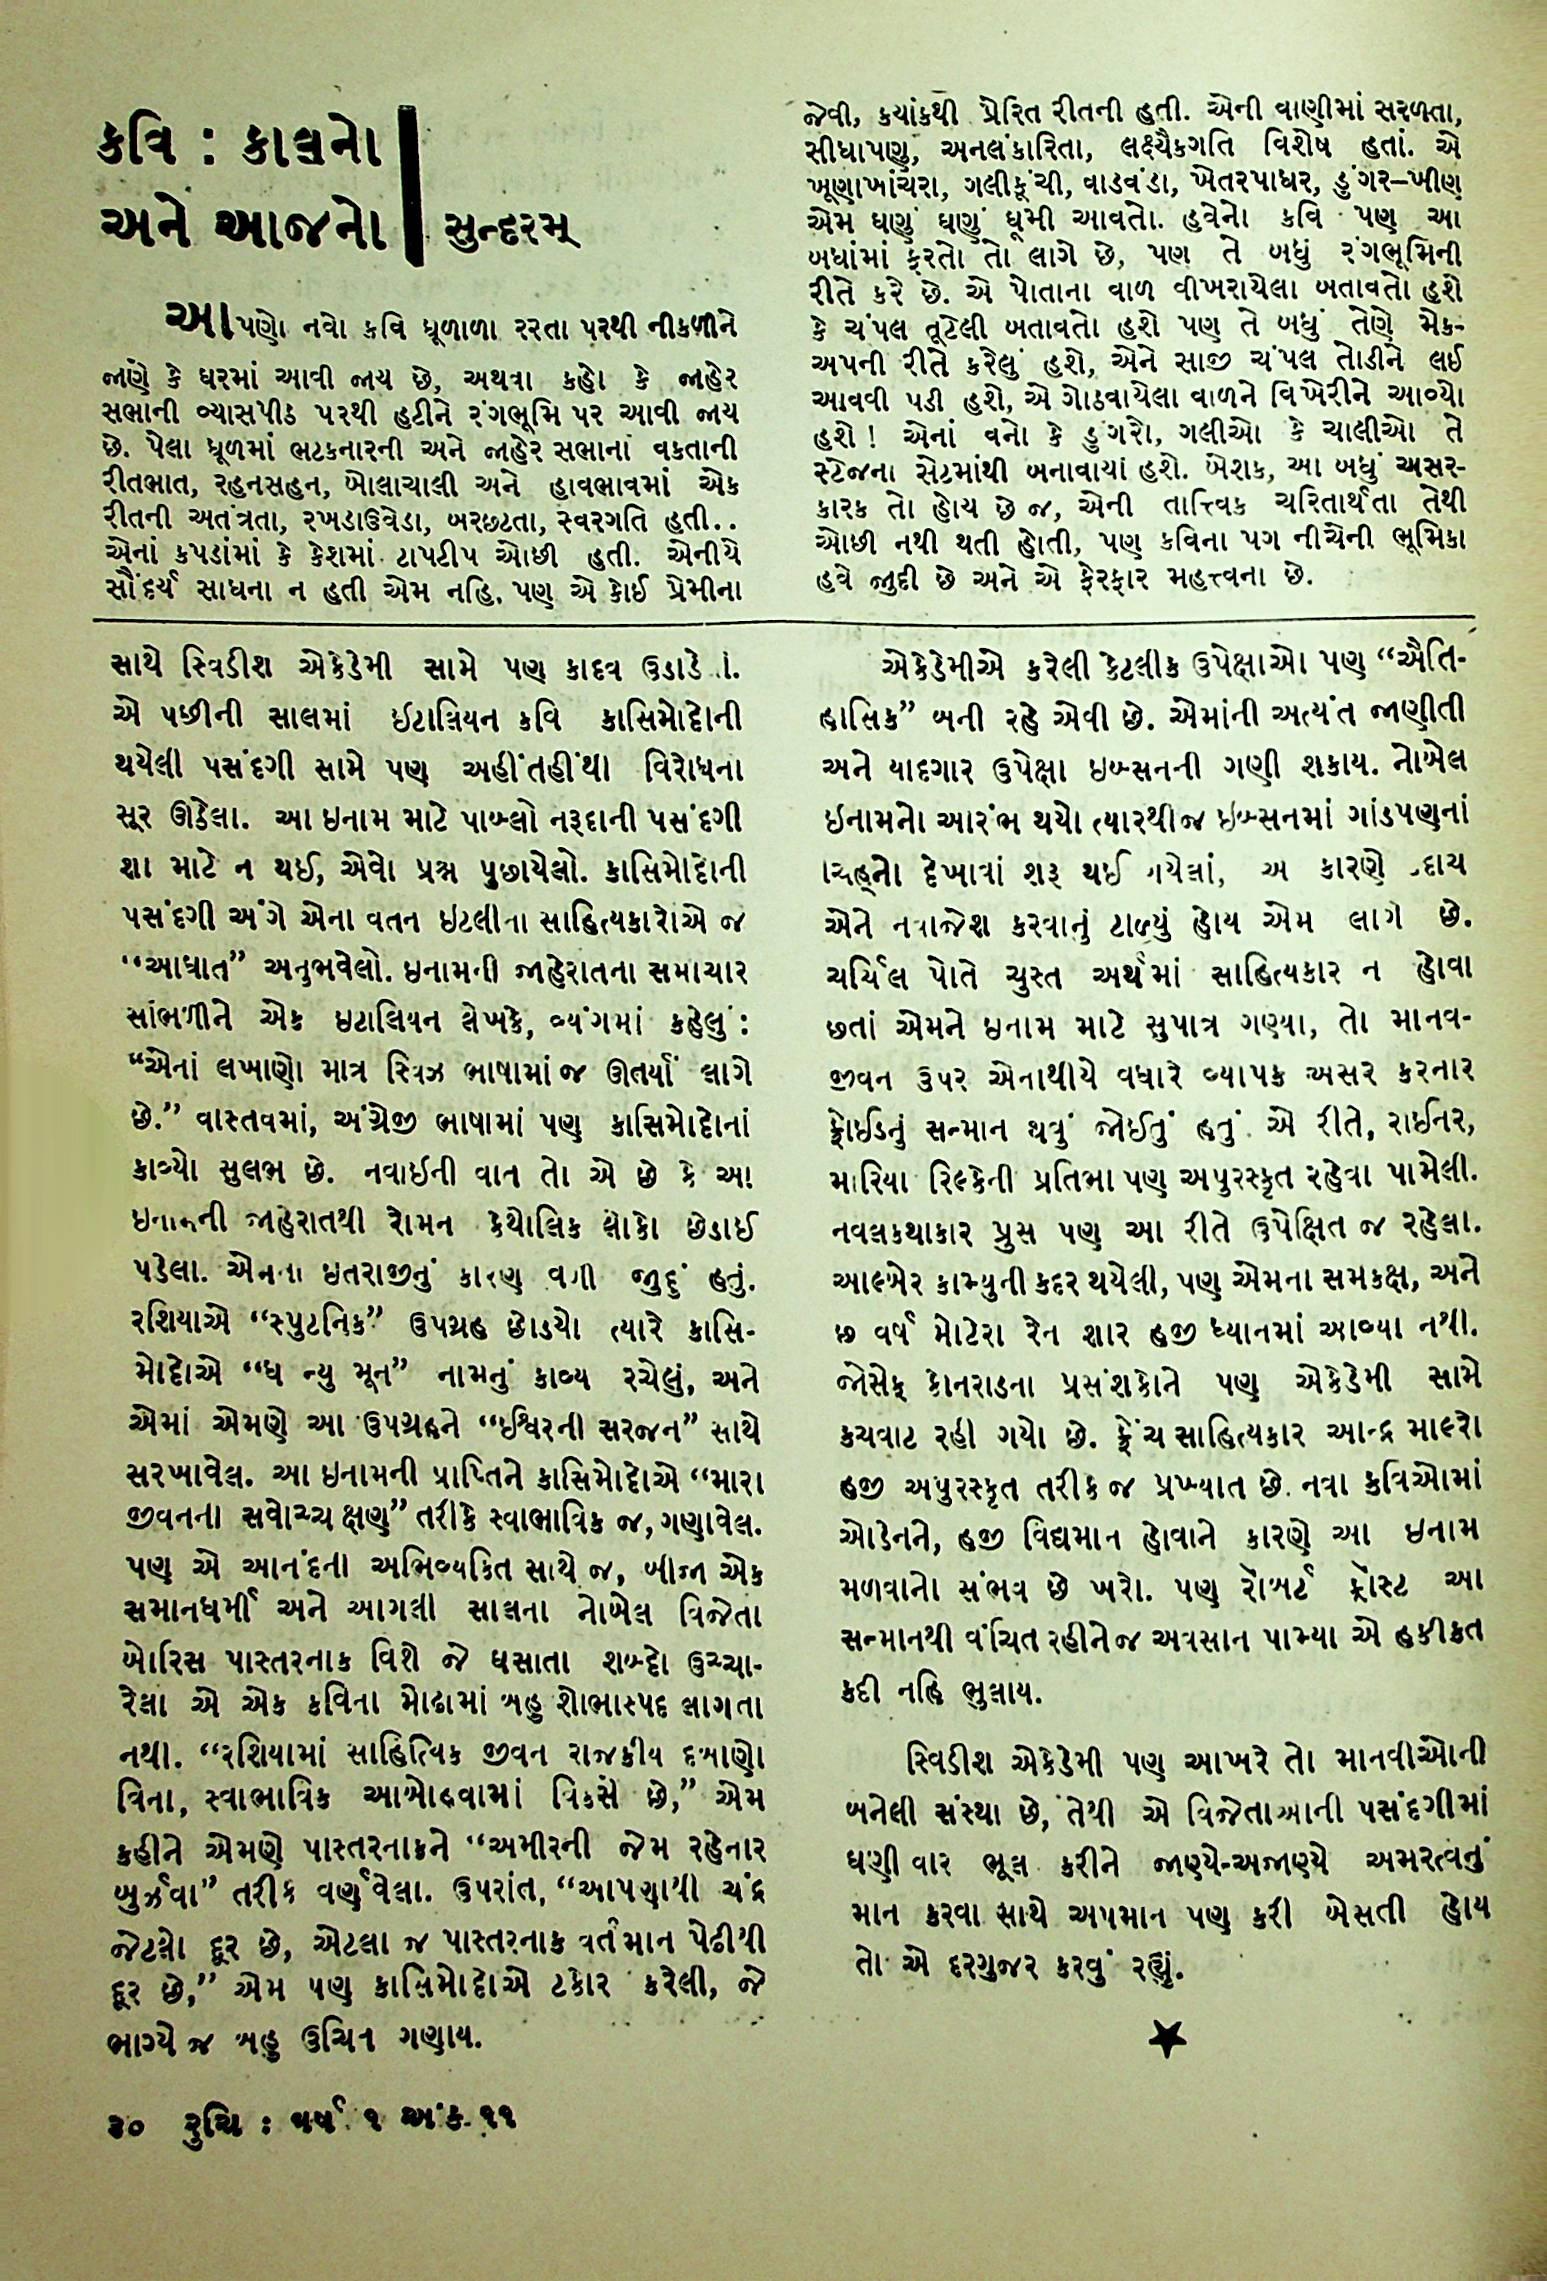 કવિ : કાલનો
અને આજનો
સુન્દરમ્
આપણો નવો કવિ ધૂળાળા રસ્તા પરથી નીકળીને
જાણે કે ઘરમાં આવી જાય છે, અથવા કહો કે જાહેર
સભાની વ્યાસપીઠ પરથી હટીને રંગભૂમિ પર આવી જાય
છે. પેલા ધૂળમાં ભટકનારની અને જાહેર સભાના વકતાની
રીતભાત, રહનસહન, બોલાચાલી અને હાવભાવમાં એક
રીતની અતંત્રતા, રખડાઉવેડા, બરછટતા, સ્વરગતિ હતી..
એનાં કપડાંમાં કે કેશમાં ટાપટીપ ઓછી હતી. એનીયે
સૌંદર્ય સાધના ન હતી એમ નહિ. પણ એ કોઈ પ્રેમીના
જેવી, કયાંકથી પ્રેરિત રીતની હતી. એની વાણીમાં સરળતા,
સીધાપણુ, અનલંકારિતા, લક્ષ્યૈકગતિ વિશેષ હતાં. એ
ખૂણાખાંચરા, ગલીકૂંચી, વાડવંડા, ખેતરપાધર, ડુંગર–ખીણ
એમ ઘણું ઘણું ઘૂમી આવતો. હવેનો કવિ પણ આ
બધાંમાં ફરતો તો લાગે છે, પણ તે બધું રંગભૂમિની
રીતે કરે છે. એ પોતાના વાળ વીખરાયેલા બતાવતો હશે
કે ચંપલ તૂટેલી બતાવતો હશે પણ તે બધું તેણે મેક-
અપની રીતે કરેલું હશે, એને સાજી ચંપલ તોડીને લઈ
આવવી પડી હશે, એ ગોઠવાયેલા વાળને વિખેરીને આવ્યો
હશે ! એનાં વનો કે ડુંગરો, ગલીઓ કે ચાલીઓ તે
સ્ટેજના સેટમાંથી બનાવાયાં હશે. બેશક, આ બધું અસર-
કારક તો હોય છે જ, એની તાત્ત્વિક ચરિતાર્થતા તેથી
ઓછી નથી થતી હોતી, પણ કવિના પગ નીચેની ભૂમિકા
હવે જુદી છે અને એ ફેરફાર મહત્ત્વના છે.
સાથે સ્વિડીશ એકેડેમી સામે પણ કાદવ
એ પછીની સાલમાં ઈટાલિયન કવિ કાસિમોદોની
થયેલી પસંદગી સામે પણ અહીંતહીંથી વિરોધના
સૂર ઊઠેલા. આ ઇનામ માટે પાબ્લો નરૂદાની પસંદગી
શા માટે ન થઈ, એવો પ્રશ્ન પુછાયેલો. કાસિમોદોની
પસંદગી અંગે એના વતન ઇટલીના સાહિત્યકારોએ જ
“આઘાત” અનુભવેલો. ઇનામની જાહેરાતના સમાચાર
સાંભળીને એક ઇટાલિયન લેખકે, વ્યંગમાં કહેલું :
“એનાં લખાણો માત્ર સ્વિઝ ભાષામાં જ ઊતર્યાં લાગે
છે.” વાસ્તવમાં, અંગ્રેજી ભાષામાં પણ કાસિમોદોનાં
કાવ્યો સુલભ છે. નવાઈની વાત તો એ છે કે આ
ઇનામની જાહેરાતથી રોમન કેથોલિક લોકો છેડાઈ
પડેલા. એમના ઇતરાજીનું કારણ વળી જુદું હતું.
રશિયાએ “સ્પુટનિક” ઉપગ્રહ છોડયો ત્યારે કાસિ-
મોદોએ “ધ ન્યુ મૂન” નામનું કાવ્ય રચેલું, અને
એમાં એમણે આ ઉપગ્રહને “ઈશ્વરની સરજન” સાથે
સરખાવેલ. આ ઇનામની પ્રાપ્તિને કાસિમોદોએ “મારા
જીવનની સર્વોચ્ચ ક્ષણ” તરીકે સ્વાભાવિક જ, ગણાવેલ.
પણ એ આનંદની અભિવ્યકિત સાથે જ, બીજા એક
સમાનધર્મી અને આગલી સાલના નોબેલ વિજેતા
બોરિસ પાસ્તરનાક વિશે જે ઘસાતા શબ્દો ઉચ્ચા-
રેલા એ એક કવિના મોઢામાં બહુ શોભાસ્પદ લાગતા
નથી. “રશિયામાં સાહિત્યિક જીવન રાજકીય દબાણો
વિના, સ્વાભાવિક આબોહવામાં વિકસે છે,” એમ
કહીને એમણે પાસ્તરનાકને “અમીરની જેમ રહેનાર
બુર્ઝવા” તરીક વર્ણવેલા. ઉપરાંત, “આપણાથી ચંદ્ર
જેટલો દૂર છે, એટલા જ પાસ્તરનાક વર્તમાન પેઢીથી
દૂર છે,” એમ પણ કાસિમોદોએ ટકોર કરેલી, જે
ભાગ્યે જ બહુ ઉચિત ગણાય.
એકેડેમીએ કરેલી કેટલીક ઉપેક્ષાઓ પણ “ઐતિ-
હાસિક” બની રહે એવી છે. એમાંની અત્યંત જાણીતી
અને યાદગાર ઉપેક્ષા ઇબ્સનની ગણી શકાય. નોબેલ
ઇનામનો આરંભ થયો ત્યારથી જ ઇબ્સનમાં ગાંડપણનાં
ચિહ્નો દેખાવાં શરૂ થઈ ગયેલાં, એ કારણે કદાચ
એને નવાજેશ કરવાનું ટાળ્યું હોય એમ લાગે છે.
ચર્ચિલ પોતે ચુસ્ત અર્થમાં સાહિત્યકાર ન હોવા
છતાં એમને ઇનામ માટે સુપાત્ર ગણ્યા, તો માનવ-
જીવન ઉપર એનાથીયે વધારે વ્યાપક અસર કરનાર
ફ્રોઈડનું સન્માન થવું જોઈતું હતું. એ રીતે, રાઈનર,
મારિયા રિલ્કેની પ્રતિભા પણ અપુરસ્કૃત રહેવા પામેલી.
નવલકથાકાર પ્રુસ પણ આ રીતે ઉપેક્ષિત જ રહેલા.
આલ્બેર કામ્યુની કદર થયેલી, પણ એમના સમકક્ષ, અને
છ વર્ષ મોટેરા રેન શાર હજી ધ્યાનમાં આવ્યા નથી.
જોસેફ કોનરાડના પ્રસંશકોને પણ એકેડેમી સામે
કચવાટ રહી ગયો છે. ફ્રેંચ સાહિત્યકાર આન્દ્ર માલ્રો
હજી અપુરસ્કૃત તરીક જ પ્રખ્યાત છે. નવા કવિઓમાં
ઓડેનને, હજી વિદ્યમાન હોવાને કારણે આ ઇનામ
મળવાનો સંભવ છે ખરો. પણ રૉબર્ટ ફ્રૉસ્ટ આ
સન્માનથી વંચિત રહીને જ અવસાન પામ્યા એ હકીકત
કદી નહિ ભુલાય.
સ્વિડીશ એકેડેમી પણ આખરે તો માનવીઓની
બનેલી સંસ્થા છે, તેથી એ વિજેતાઓની પસંદગીમાં
ઘણી વાર ભૂલ કરીને જાણ્યે-અજાણ્યે અમરત્વનું
માન કરવા સાથે અપમાન પણ કરી બેસતી હોય
તો એ દરગુજર કરવું રહ્યું.
૩૦ રુચિ : વર્ષ ૧ અંક ૧૧